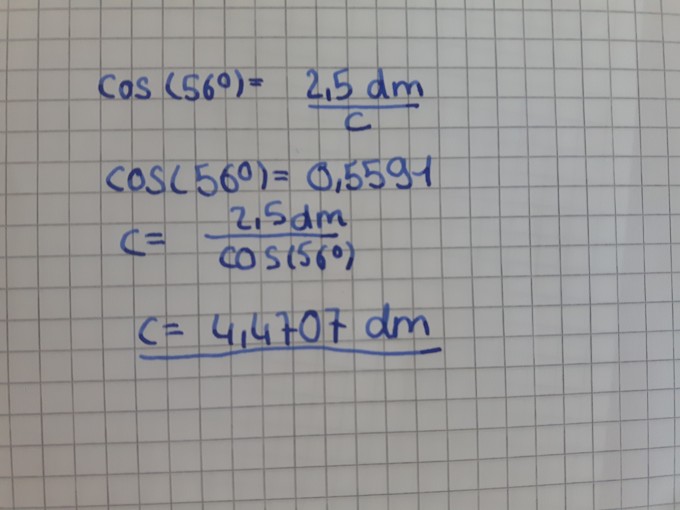 cos (56°)= 2,5 dm / c
cos(56°)= 0,5591
c= 2,5dm / cos(56°)
c= 4,4707 dm